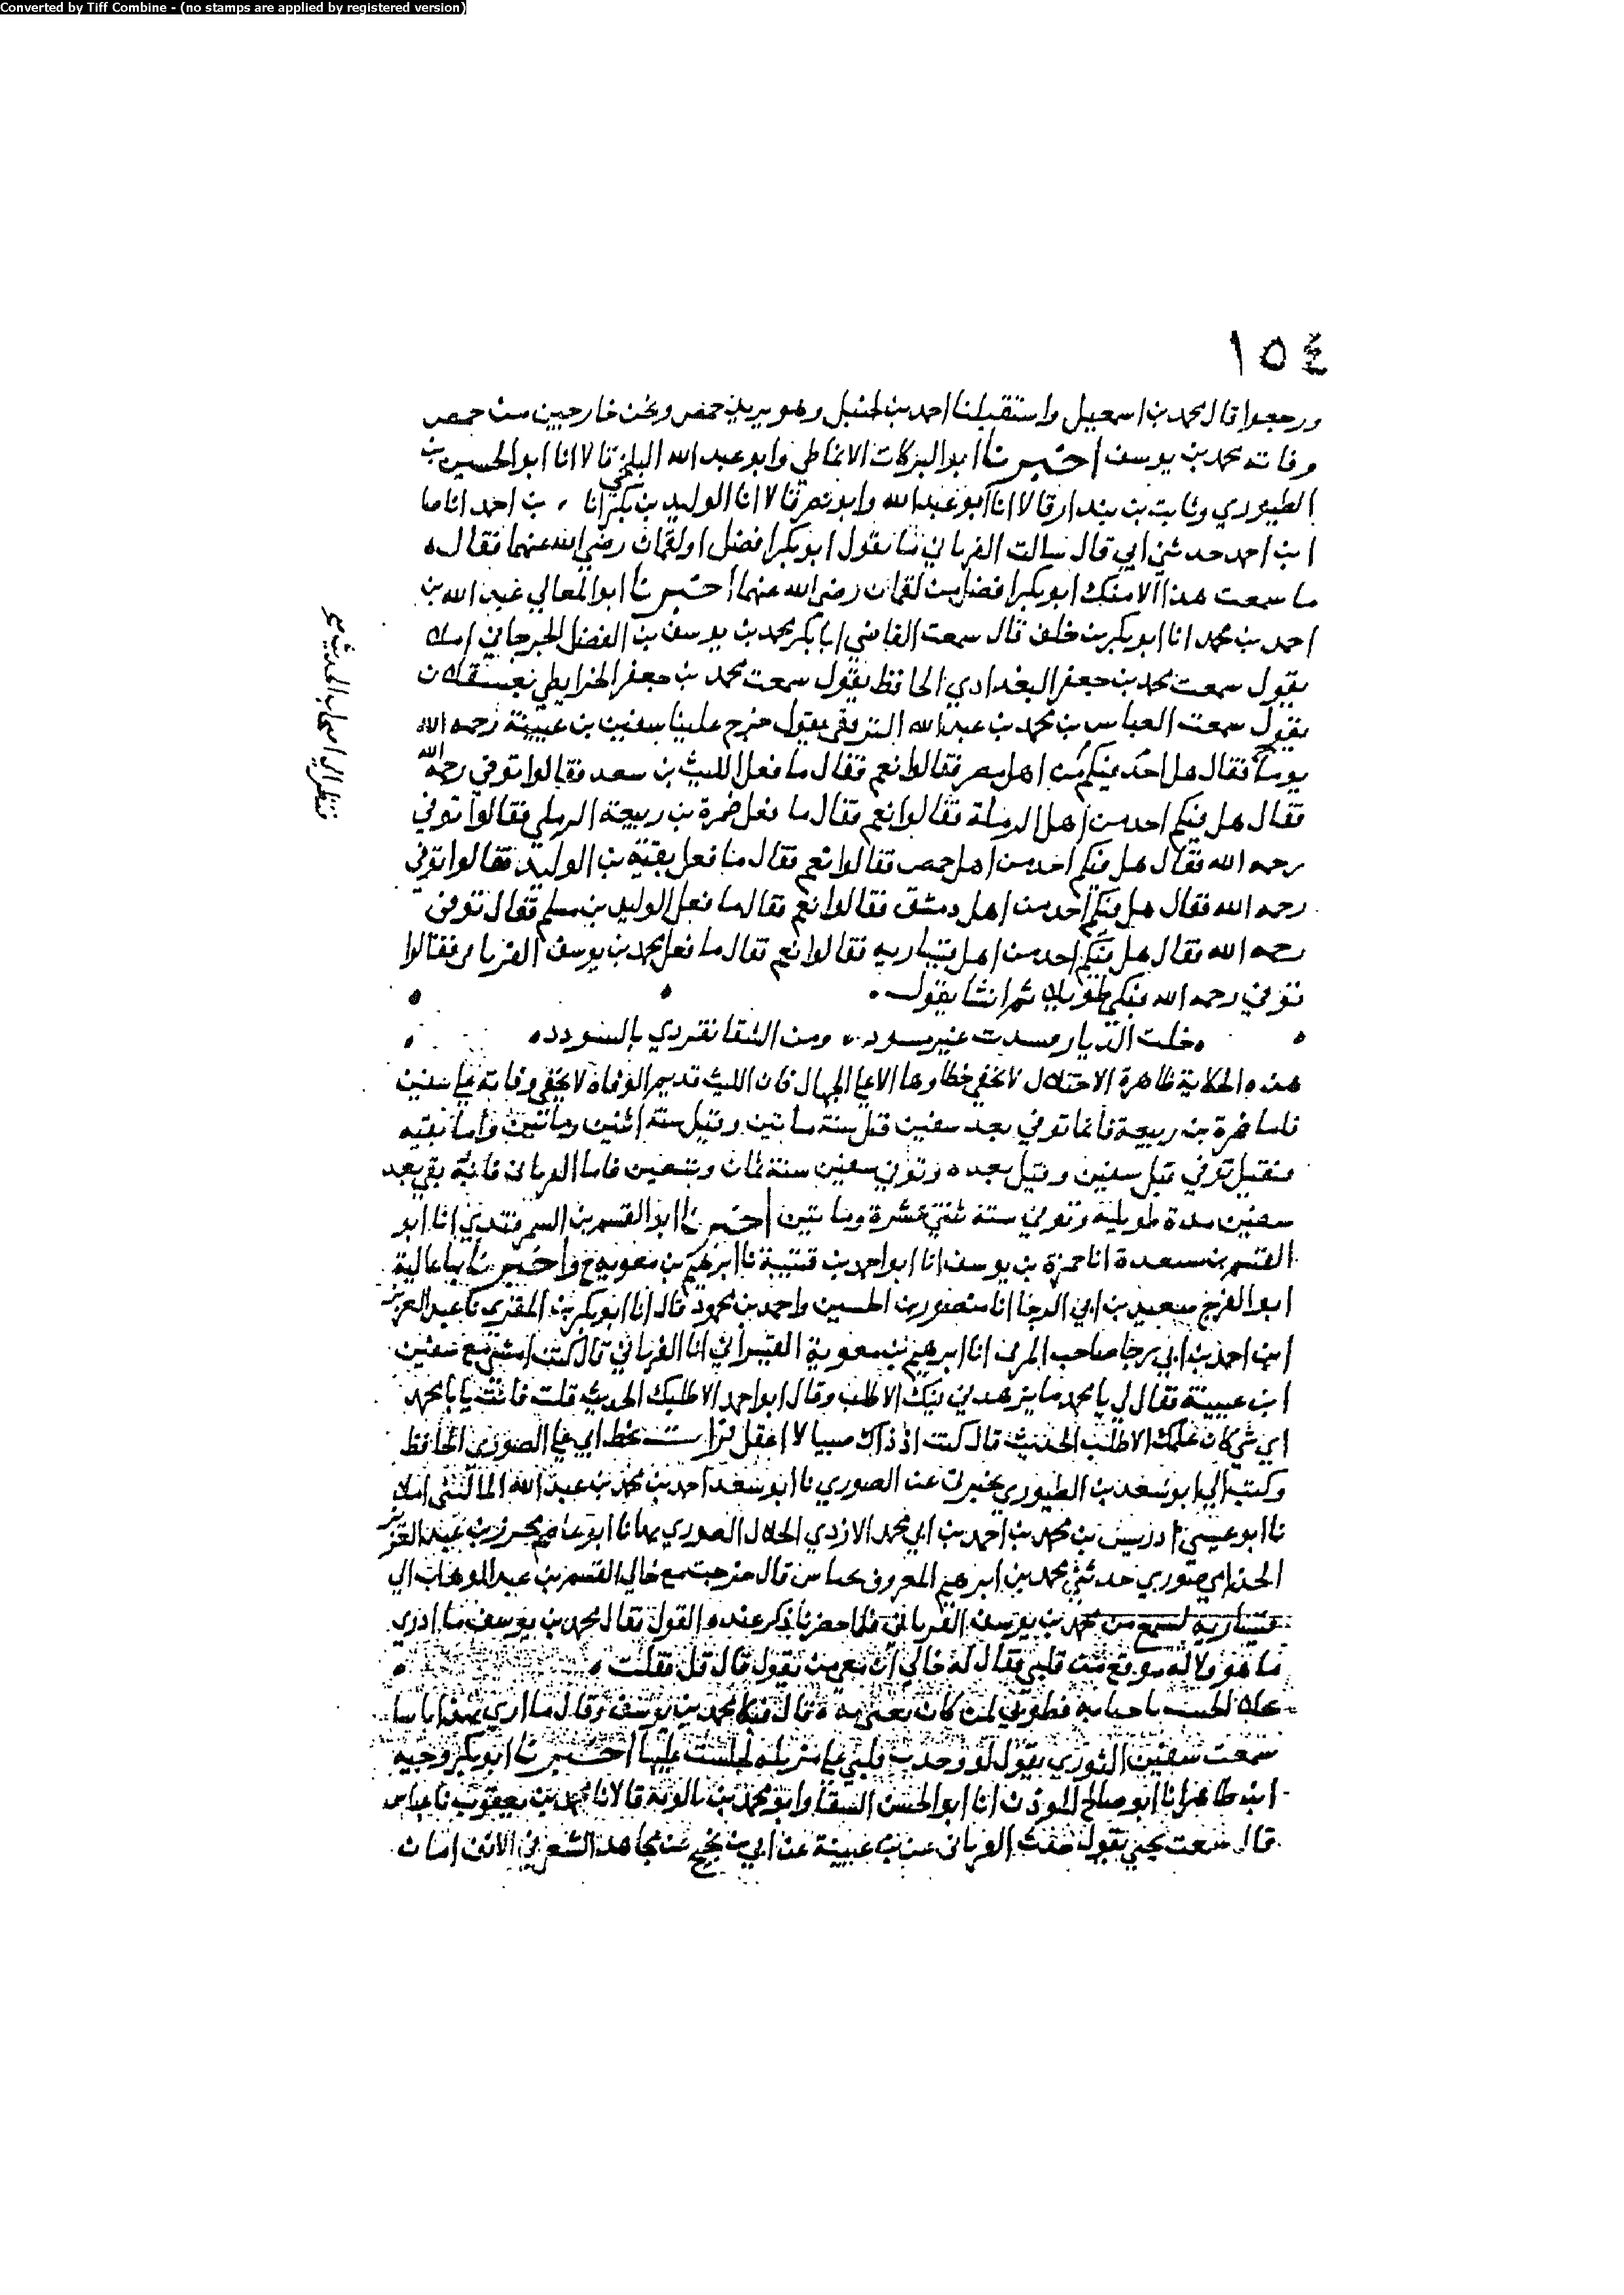 Converted by Tiff Combine - (no stamps are applied by registered version)
١٥٤
ورجعوا قال محمد بن اسمعيل واستقبلنا احمد بن حنبل وهو يريد حمص ونحن خارجين من حمص
وفاته محمد بن يوسف اخبرنا ابو البركات الانماطي وابو عبد الله البلخي قالا انا ابو الحسين بن
الطيوري وثابت بن بندار قالا انا ابو عبد الله وابو نصر قالا انا الوليد بن بكر انا بن احمد انا صا
ابن احمد حدثني ابي قال سالت الفريابي ما تقول ابو بكر افضل او لقمان رضي الله عنهما فقال
ما سمعت هذا الا منك ابو بكر افضل من لقمان رضي الله عنهما اخبرنا ابو المعالي عبد الله بن
احمد بن محمد انا ابو بكر بن خلف قال سمعت القاضي ابا بكر محمد بن يوسف بن الفضل الجرجاني املا
يقول سمعت محمد بن جعفر البغدادي الحافظ يقول سمعت محمد بن جعفر الخرايطي بعسقلان
يقول سمعت العباس بن محمد بن عبد الله الترقفي يقول خرج علينا سفين بن عيينة رحمه الله
يوما فقال هل احد فيكم من اهل مصر فقالوا نعم فقال ما فعل الليث بن سعد فقالوا توفي رحمه الله
فقال هل فيكم احد من اهل الرملة فقالوا نعم فقال ما فعل ضمرة بن ربيعة الرملي فقالوا توفي
رحمه الله فقال هل فيكم احد من اهل حمص فقالوا نعم فقال ما فعل بقية بن الوليد فقالوا توفي
رحمه الله فقال هل فيكم احد من اهل دمشق فقالوا نعم فقال ما فعل الوليد بن مسلم فقال توفي
رحمه الله فقال هل فيكم احد من اهل قيسارية فقالوا نعم فقال ما فعل محمد بن يوسف الفريابي فقالوا
توفي رحمه الله فبكى طويلا ثم انشا يقول
خلت الديار فسدت غير مسود ومن الشقا تفردي بالسودد
هذه الحكاية ظاهرة الاختلال لا يخفى خطاوها الا على الجهال فان الليث قديم الوفاة لا يخفى وفاته على سفين
فاما ضمرة بن ربيعة فانما توفي بعد سفين قيل سنة مايتين وقيل سنة اثنين ومايتين واما بقيه
فقيل توفي قبل سفين وقيل بعده وتوفي سفين سنة ثمان وتسعين فاما الفريابي فانه بقي بعد
سفين مدة طويلة وتوفي سنة ثنتي عشرة ومايتين اخبرنا ابو القسم بن السمرقندي انا ابو
القسم بن مسعدة انا حمزة بن يوسف انا ابو احمد بن قتيبة نا ابرهيم بن معوية ح واخبرنا بها عالية
ابو الفرج سعيد بن ابي الرجا انا منصور بن الحسين واحمد بن محمود قال انا ابو بكر بن المقري نا عبد العزيز
ابن احمد بن ابي رجا صاحب انا ابرهيم بن معوية القيسراني انا الفريابي قال كنت امشي مع سفين
ابن عيينة فقال لي يا محمد ما يزهدني فيك الا طلب وقال ابو احمد الا طلبك الحديث قلت فانت يا با محمد
اي شي كان عملك الا طلب الحديث قال كنت اذ ذاك صبيا لا اعقل قرات بخط ابي علي الصوري الحافظ
وكتب الي ابو سعد بن الطيوري يخبرني عن الصوري نا ابو سعد احمد بن محمد بن عبد الله الماليني املا
نا ابو عيسى ادريس بن محمد بن احمد بن ابي محمد الازدي الخلال الصوري بها نا ابو عاصم محرز بن عبد العزيز
الجذامي صوري حدثني محمد بن ابرهيم المعروف قال خرجت مع خالي القسم بن عبد الوهاب الي
قيسارية لنسمع من محمد بن يوسف الفريابي فلما حضرنا ذكر عنده القول فقال محمد بن يوسف ما ادري
ما هو ولا له موقع من قلبي فقال له خالي ان معي من يقول قال قل فقلت
فطوبي لمن كان يعني به قال فبكا محمد بن يوسف وقال ما اري بهذا باسا
سمعت سفين الثوري يقول لو وجدت قلبي على مزبلة لجلست عليها اخبرنا ابو بكر وجيه
ابن طاهر انا ابو صالح الموذن انا ابو الحسن السقا وابو محمد بن بالوية قالا نا محمد بن يعقوب نا عباس
قال سمعت يحيى يقول حدث الفريابي عن بن عيينة عن ابن ابي نجيح عن مجاهد الشعر في الانف امان
تنظر الي اصحاب الحديث